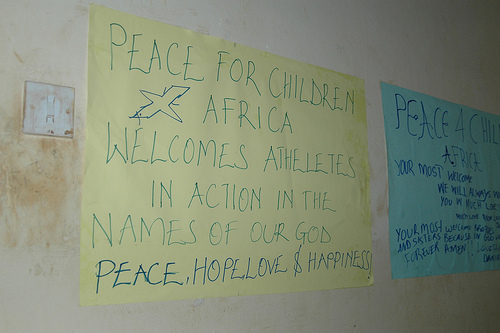 PEACE FOR CHILDREN
AFRICA
WELCOMES ATHELETES
IN ACTION IN THE
NAMES OF OUR GOD
PEACE, HOPE, LOVE $ HAPPINESS!
PEACE 4 CHIL
AFRICA
YOUR MOST WELCOME
WE WILL ALWAYS
YOU W MUCH
YOUR MOST WELCOME
AND SISTERS BECAUSE
FOREVER AMEN